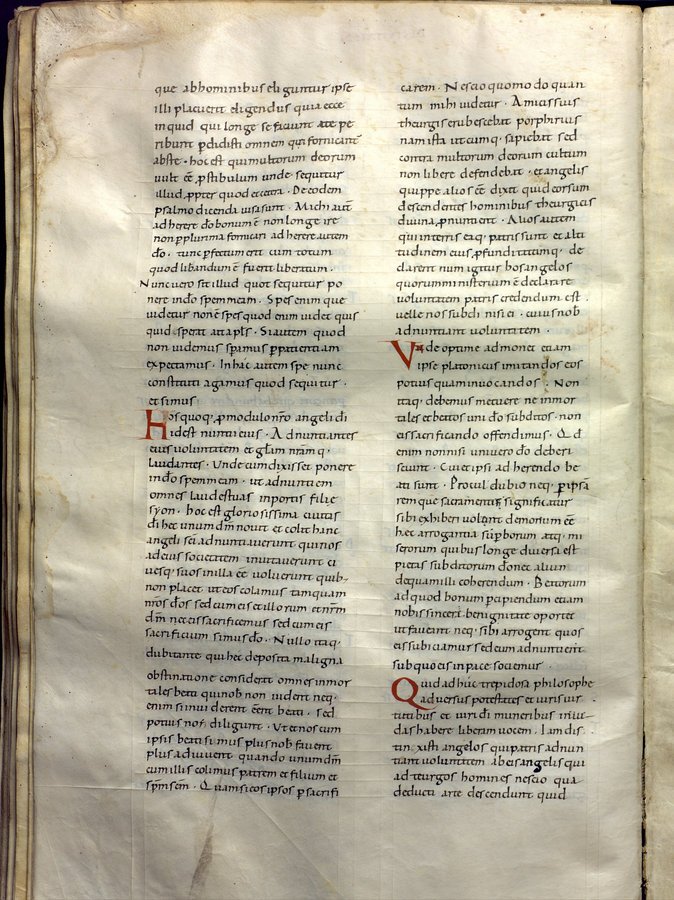 que abhominibus eliguntur ipse
illi placuerit eligendus quia ecce
inquid qui longe se faciunt ate pe
ribunt pdidisti omnem qui fornicant̄
abste · hoc est qui multorum deorum
uult eē pstibulum unde · sequitur
illud ppter quod et cetera · De eodem
psalmo dicenda uisa sunt · Michi autē
adherere dō bonum ē non longe ire
non p plurima fornicari adherere autem
dō · tunc pfectum erit cum totum
quod libandum ē fuerit liberatum ·
Nunc uero sit illud quot sequitur po
nere indō spem meam · Spes enim que
uidetur non ē spes quod enim uidet quis
quid & sperat ait apls̄ · Si autem quod
non uidemus spamus p patientiam
expectamus · In hac autem spe nunc
constituti agamus quod sequitur ·
et simus
Hos quoq; p modulo nr̄o angeli dī
id est nuntii eius · Adnuntiantes
eius uoluntatem et glam̄ nram̄ q;
laudantes · Unde cum dixisset ponere
indō spem meam · ut adnuntiem
omnes laudes tuas inportis filie
syon · hoc est gloriosissima ciuitas
dī hec unum dm̄ nouit et colit hanc
angeli sc̄i adnuntiauerunt qui nos
ad eius societatem inuitauerunt ci
uesq; suos in illa eē uoluerunt quib;
non placet ut eos colamus tamquam
nr̄os dōs sed cum eis et illorum et nr̄m
dm̄ nec eis sacrificemus sed cum eis
sacrificium simus dō · Nullo itaq;
dubitante qui hec deposita maligna
obstinatione considerat omnes inmor
tales beati qui nob non inuident neq;
enim si inuiderent eent̄ beati · sed
potius nos̄ diligunt · Ut et nos cum
ipsis beati simus plus nob fauent
plus adiuuent quando unum dm̄
cum illis colimus patrem et filium et
spm̄ sem̄ · Quam si eos ipsos p sacrifi
carem · Nescio quomodo quan
tum mihi uidetur · Amicis suis
theurgis erubescebat porphirius
nam ista utcumq; sapiebat sed
contra multorum deorum cultum
non libere defendebat · et angelis
quippe alios eē dixit qui deorsum
descendentes hominibus theurgicis
diuina pnuntient · Alios autem
qui interris ea q; patris sunt et alti
tudinem eius pfunditatemq; de
clarent num igitur hos angelos
quorum ministerium ē declarare
uoluntatem patris credendum est
uelle nos subdi nisi ei · cuius nob
adnuntiant uoluntatem ·
Unde optime admonet etiam
ipse platonicus imitandos eos
potius quam inuocandos · Non
itaq; debemus metuere ne inmor
tales et beatos uni dō subditos · non
eis sacrificando offendimus · Qd̄
enim non nisi uni uero dō deberi
sciunt · Cui et ipsi adherendo be
ati sunt · Procul dubio neq; p ipsā
rem que sacramentis significatur
sibi exhiberi uolunt demonum eē
hec arrogantia supborum atq; mi
serorum quibus longe diuersa est
pietas subditorum dō nec aliun
de quam illi coherendo · Beatorum
ad quod bonum pcipiendum etiam
nobis sincera benignitate oportet
ut faueant neq; sibi arrogent quo eis
subiciamur sed eum adnuntient
sub quo eis in pace sociemur ·
Quid adhuc trepidas a philosophe
aduersus potestates et ueris uir
tutibus et ueri dī muneribus inui
das habere liberam uocem · Iam dis
tinxisti angelos qui patris adnun
tiant uoluntatem ab eis angelis qui
ad teurgos homines nescio qua
deducti arte descendunt quid